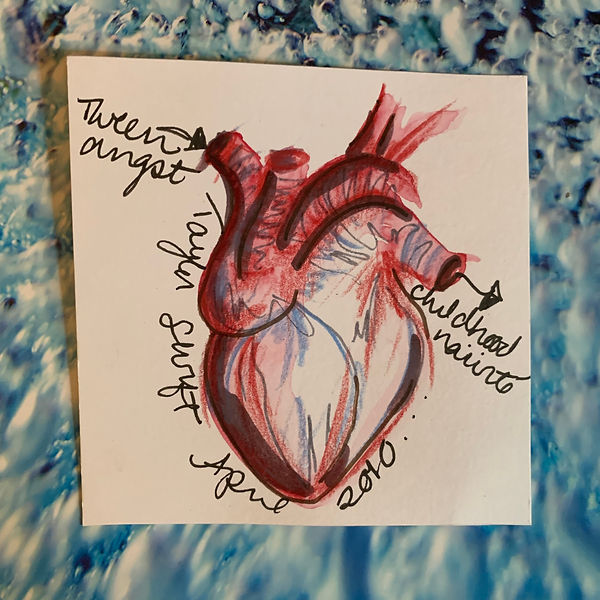 Tween
angst
Taylor Swift
childhood
naiivte
April
2010....